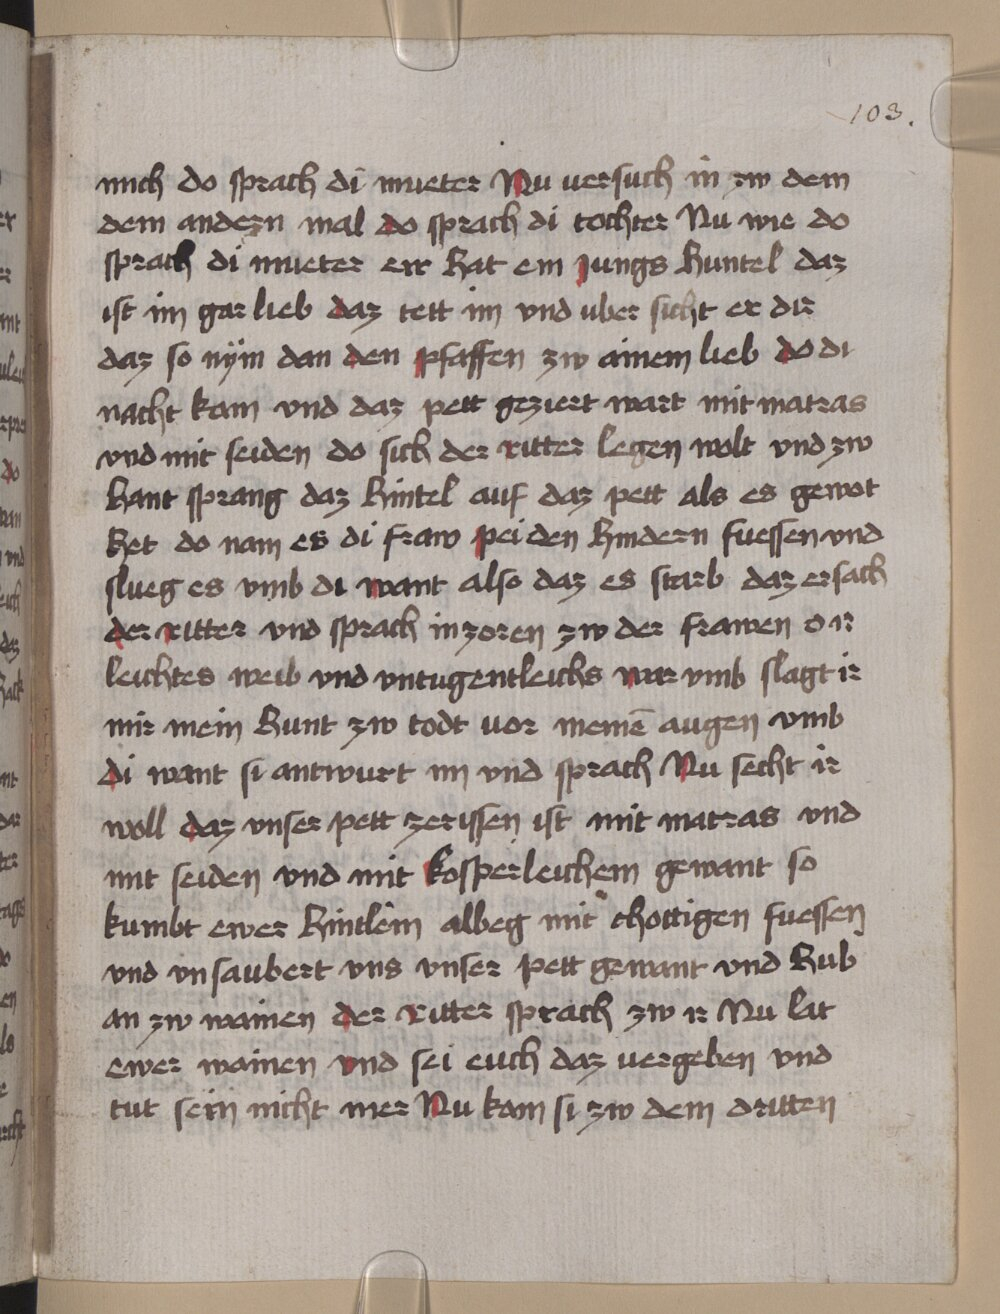 103.
mich do sprach di mueter Nu versuch in zw dem
dem andern mal do sprach di tochter Nu wie do
sprach di mueter err hat ein jungs huntel daz
ist im gar lieb daz tett im vnd uber sicht er dir
daz so nÿm dan den pfaffen zw ainem lieb do di
nacht kam vnd daz pett geziert wart mit matras
vnd mit seiden do sich der ritter legen wolt vnd zw
hant sprang daz hintel auf daz pett als es gewot
het do nam es di fraw pei den hindern fuessen vnd
slueg es vmb di want also daz es starb daz ersach
der ritter vnd sprach in zoren zw der frawen o ir
leichtes weib vnd vntugentleichs war vmb slagt ir
mir mein hunt zw todt vor meinē augen vmb
di want si antwurt im vnd sprach Nu secht ir
woll daz vnser pett zerissen ist mit matras vnd
mit seiden vnd mit kosperleichem gewant so
kumbt ewer hintlein albeg mit chottigen fuessen
vnd vnsaubert vns vnser pett gewant vnd hub
an zw wainen der ritter sprach zw ir Nu lat
ewer wainen vnd sei euch daz vergeben vnd
tut sein nicht mer Nu kam si zw dem dritten